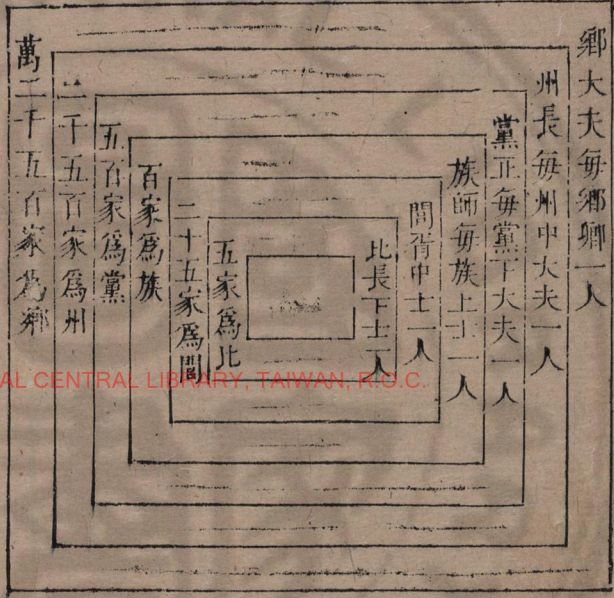 鄉大夫每鄉卿一人
州長每州中大夫一人
黨正每黨下大夫一人
族師每族上士一人
閭胥中士一人
比長下士一人
五家爲比
二十五家爲閭
百家爲族
五百家爲黨
二千五百家爲州
萬二千五百家爲鄉
AL CENTRAL LIBRARY, TAIWAN, R.O.C.